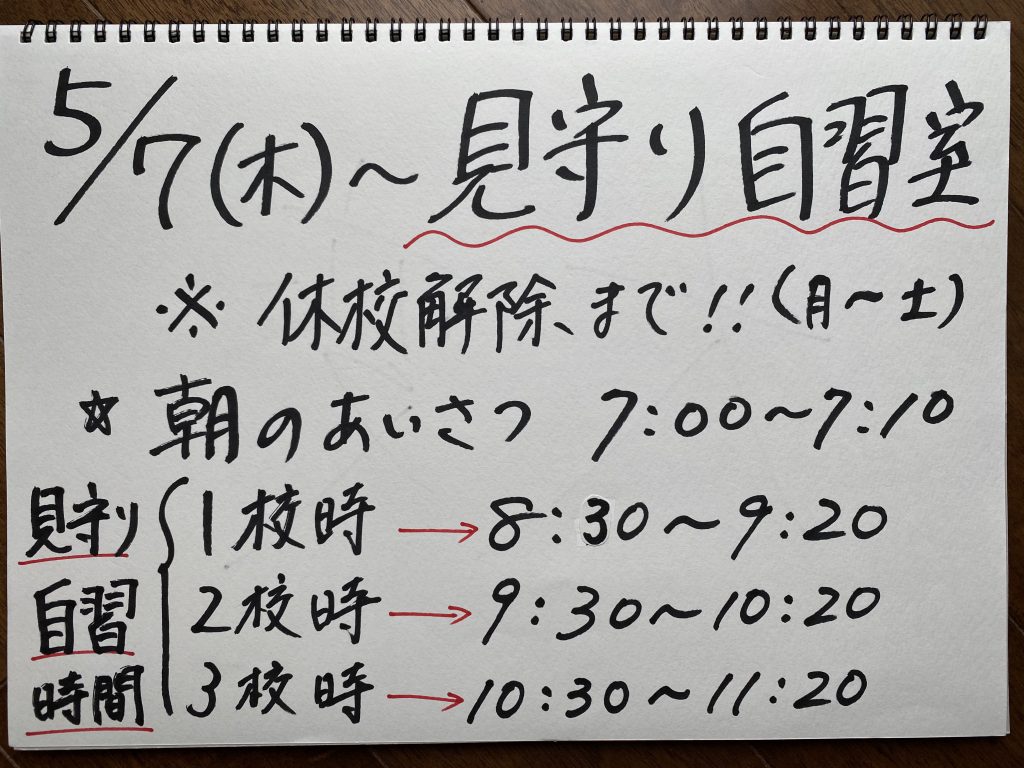 5/7(木)〜見守り自習室
※ 休校解除、まで!!(月〜土)
☆ 朝のあいさつ 7:00〜7:10
見守り自習時間
1校時→8:30〜9:20
2校時→9:30〜10:20
3校時→10:30〜11:20